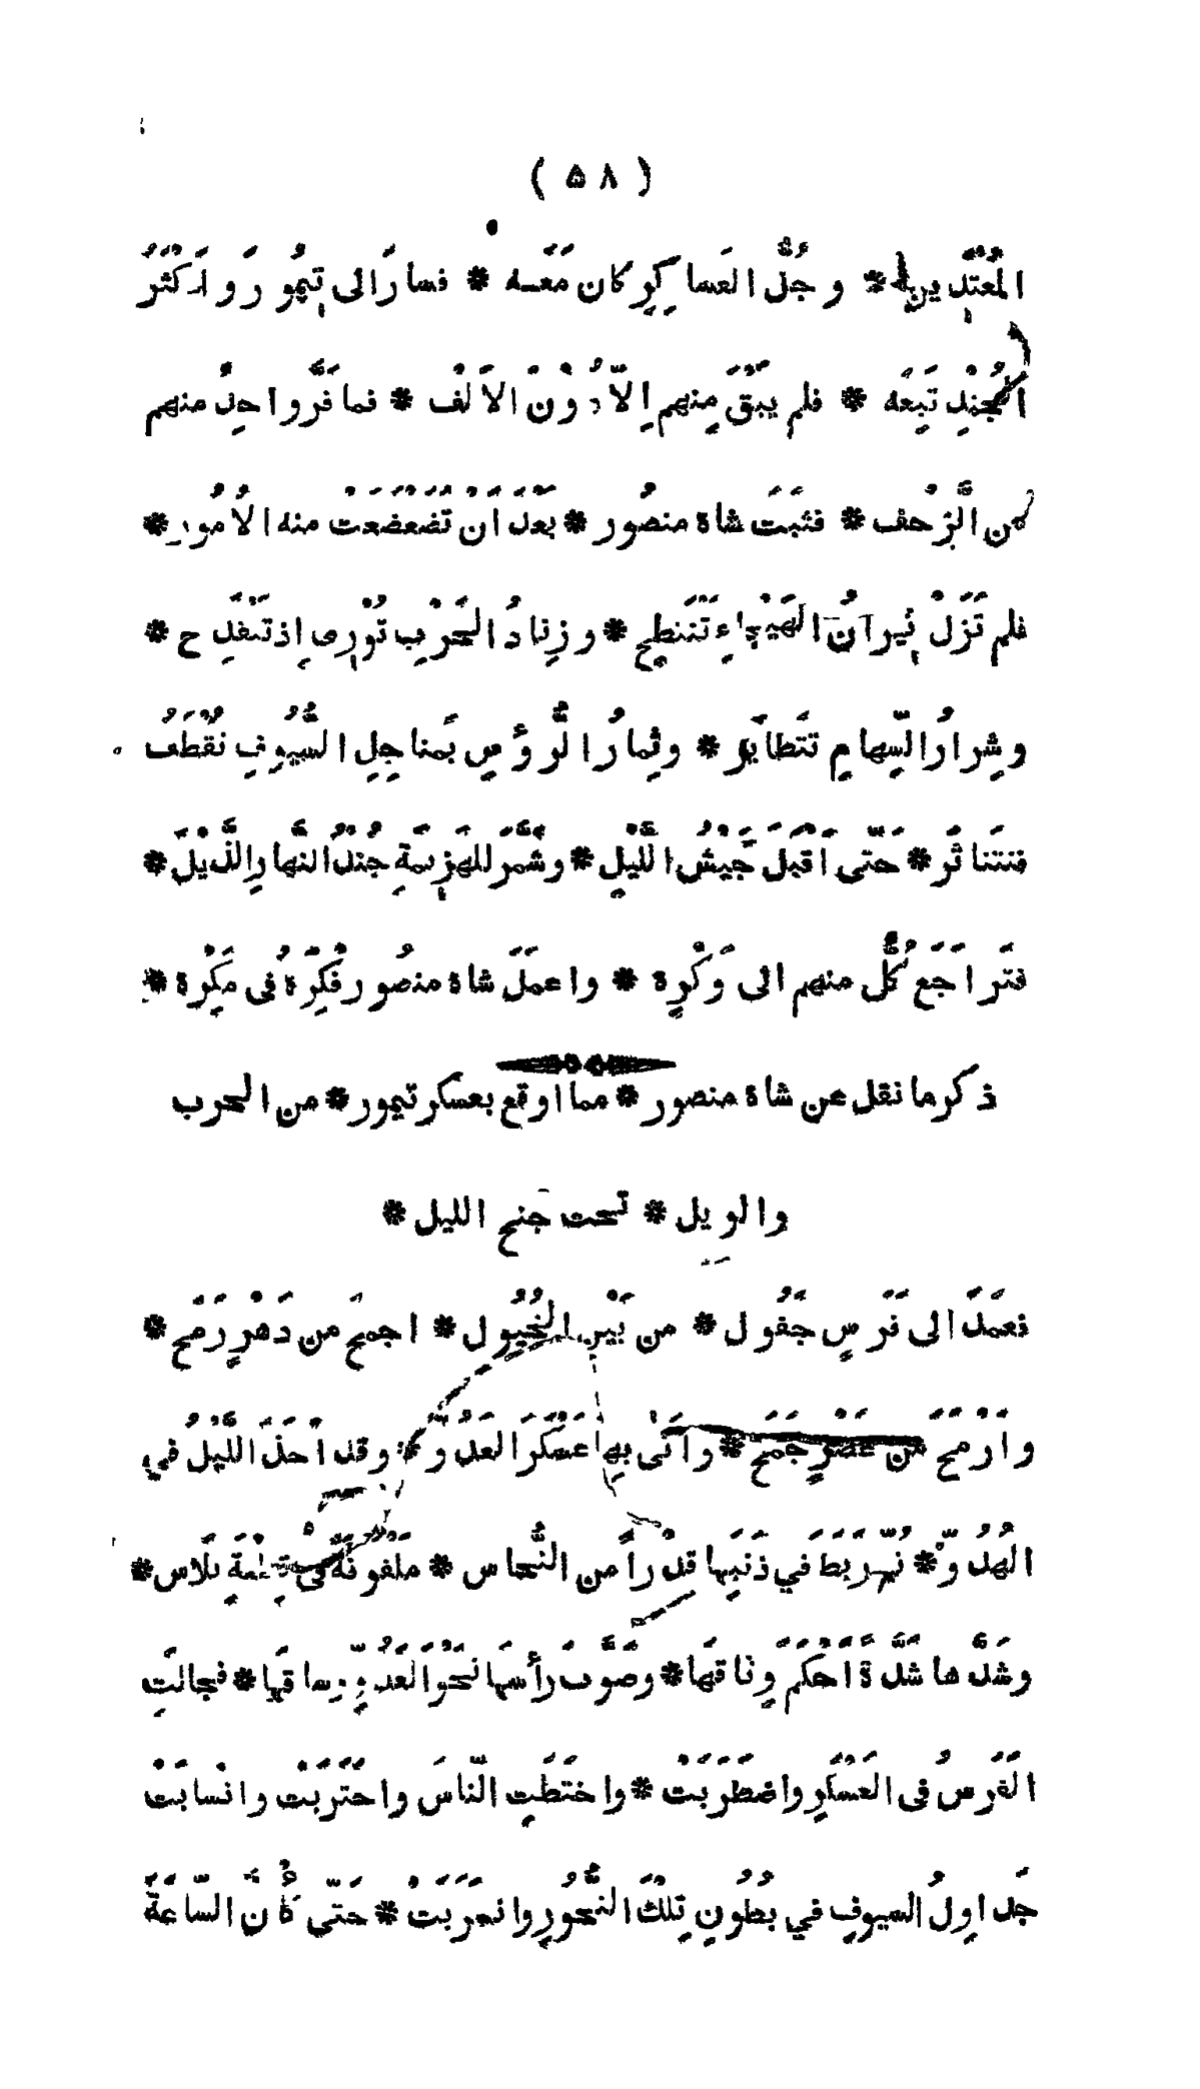 ( ٥٨ )
المُعْتَدِين * وجُلُّ العَساكِرِ كان مَعَه * فسارَ الى تِيمُورَ وأَكْثَرُ
الجُنْدِ تَبِعَه * فلم يَبْقَ مِنهم إلّا دُوْنَ الاَلْف * فما فَرَّ واحِدٌ منهم
من الزَّحْف * فثَبَتَ شاه منصُور * بَعْدَ اَنْ تَضَعْضَعَتْ منه الاُمُور *
فلم تَزَلْ نِيرانُ الهَيْجاءِ تَنْتَطِح * وزِنادُ الحَرْبِ تُوْرِى اِذ تَنقدِح *
وشِرارُ السِّهامِ تتَطايَر * وثِمارُ الرُّؤُسِ بمَناجِلِ السُّيُوفِ تُقْطَفُ
فتتناثَر * حَتّى اَقْبَلَ جَيْشُ اللَّيْلِ * وشَمَّرَ للهَزِيمَةِ جُنْدُ النَّهارِ الذَّيْلَ *
فتَراجَعَ كُلٌّ منهم الى وَكْرِه * واعمَلَ شاه منصُور فِكْرَهُ فى مَكْرِه *
ذكر ما نقل عن شاه منصور * مما اوقع بعسكر تيمور * من الحرب
والويل * تحت جنح الليل *
فعَمَدَ الى فَرَسٍ جَفُول * من بَيْنِ الخُيُول * اجمَح من دَهْرٍ رَمَح *
واَرْمَح مَن عَصْرٍ جَمَح * واَتى بِها عَسْكَرَ العَدُوّ * وقد اَخذَ اللَّيْلُ في
الهُدُوّ * ثُمَّ رَبَطَ في ذَنَبِها قِدْراً من النُّحاس * مَلْفُوفَةً فى قِطْعَةِ بَلاس *
وشَدَّها شَدَّةً اَحْكَمَ وِثاقَها * وصَوَّبَ رأسَها نَحْوَ العَدُوِّ وساقَها * فجالَتِ
الفَرَسُ فى العَسْكَرِ واضطَرَبَتْ * واختَبَطَتِ النّاسَ واحْتَرَبَتْ وانْسابَتْ
جَداوِلُ السيوفِ في بُطُونِ تِلْكَ النُّحُورِ وانسَرَبَتْ * حَتّى كَأَنَّ السّاعَةَ